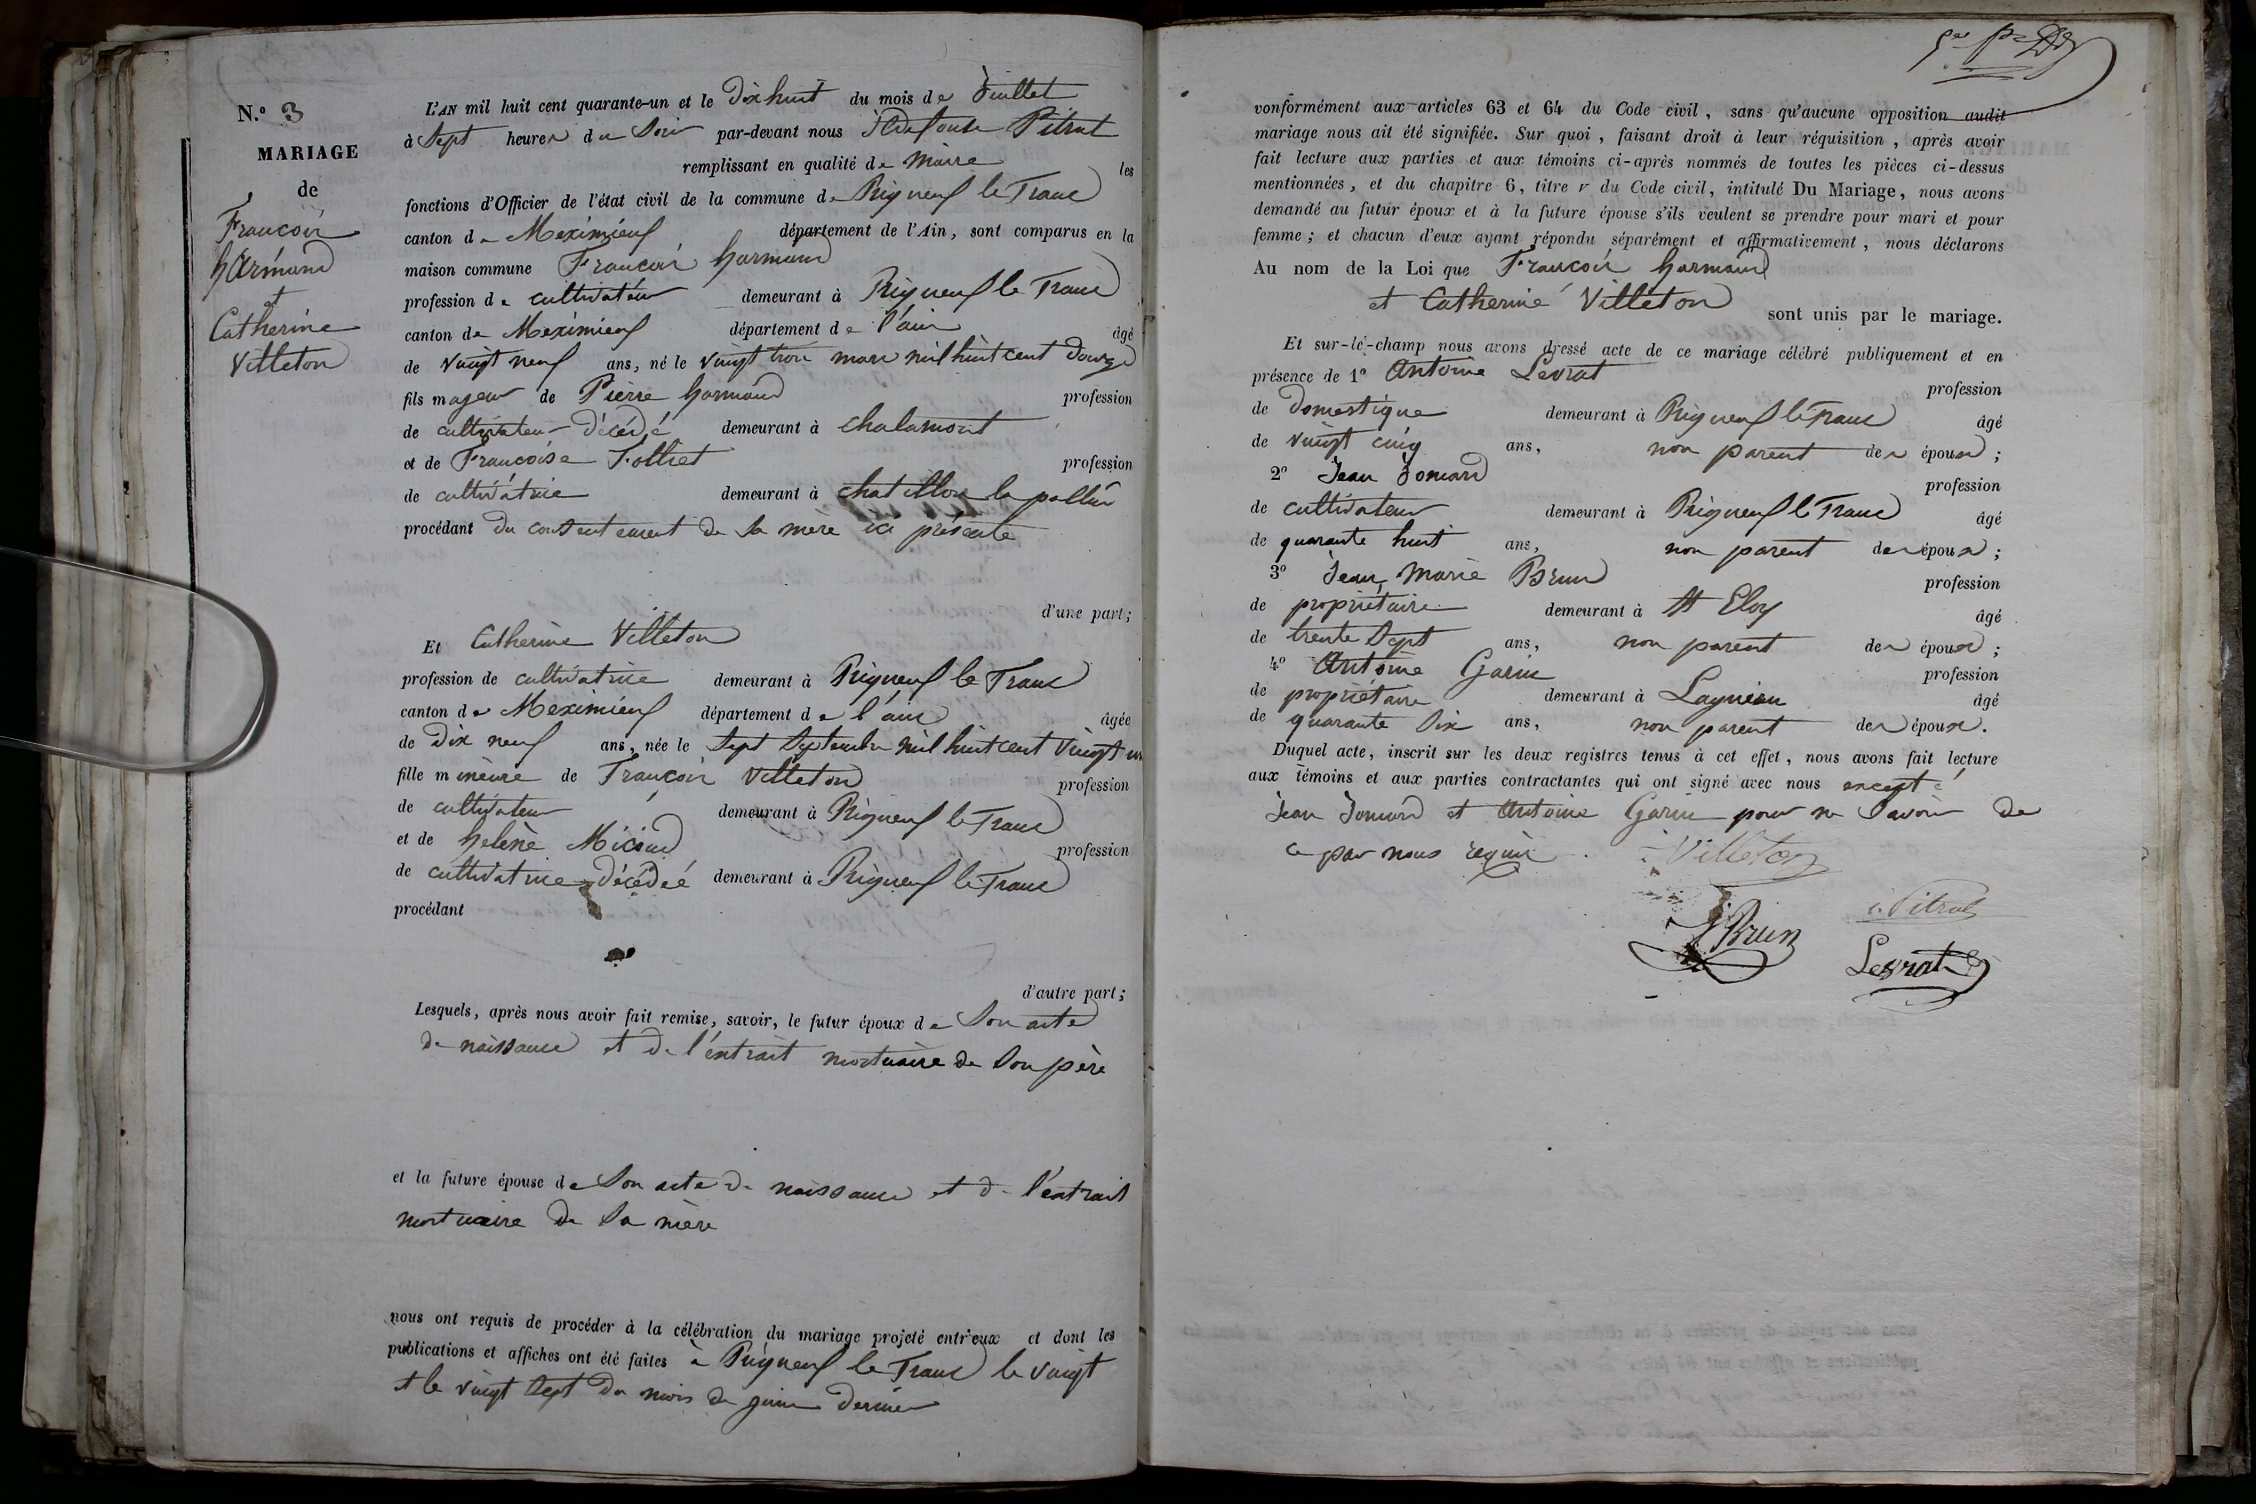 N.o 3
MARIAGE
de
François
harmand
et
Catherine
Villeton
L'AN mil huit cent quarante-un et le Dix huit du mois de Juillet
à Sept heures du Soir par-devant nous Ildefonse Pitrat
remplissant en qualité de Maire les
fonctions d'Officier de l'état civil de la commune de Rigneux le Franc
canton de Meximieux département de l'Ain, sont comparus en la
maison commune François harmand
profession de cultivateur demeurant à Rigneux le Franc
canton de Meximieux département de l'ain âgé
de vingt neuf ans, né le vingt trois mars mil huit cent douze
fils majeur de Pierre harmand profession
de cultivateur décédé demeurant à chalamont
et de Françoise Folliet profession
de cultivatrice demeurant à chatillon la pallud
procédant du consentement de sa mère ici présente
d'une part;
Et Catherine Villeton
profession de cultivatrice demeurant à Rigneux le Franc
canton de Meximieux département de l'ain âgée
de dix neuf ans, née le Sept Septembre mil huit cent vingt un
fille mineure de François Villeton profession
de cultivateur demeurant à Rigneux le Franc
et de helène Micoud profession
de cultivatrice décédée demeurant à Rigneux le Franc
procédant
d'autre part;
Lesquels, après nous avoir fait remise, savoir, le futur époux de Son acte
de naissance et de l'extrait mortuaire de Son père
et la future épouse de Son acte de naissance et de l'extrait
mortuaire de Sa mère
nous ont requis de procéder à la célébration du mariage projeté entr'eux et dont les
publications et affiches ont été faites à Rigneux le Franc le vingt
et le vingt Sept du mois de juin dernier
conformément aux articles 63 et 64 du Code civil, sans qu'aucune opposition audit
mariage nous ait été signifiée. Sur quoi, faisant droit à leur réquisition, après avoir
fait lecture aux parties et aux témoins ci-après nommés de toutes les pièces ci-dessus
mentionnées, et du chapitre 6, titre v du Code civil, intitulé Du Mariage, nous avons
demandé au futur époux et à la future épouse s'ils veulent se prendre pour mari et pour
femme; et chacun d'eux ayant répondu séparément et affirmativement, nous déclarons
Au nom de la Loi que François harmand
et Catherine Villeton sont unis par le mariage.
Et sur-le-champ nous avons dressé acte de ce mariage célébré publiquement et en
présence de 1o Antoine Levrat profession
de domestique demeurant à Rigneux le Franc âgé
de vingt cinq ans, non parent des époux;
2o Jean Jomard profession
de cultivateur demeurant à Rigneux le Franc âgé
de quarante huit ans, non parent des époux;
3o Jean Marie Brun profession
de propriétaire demeurant à St Eloy âgé
de trente Sept ans, non parent des époux;
4o Antoine Garin profession
de propriétaire demeurant à Lagnieu âgé
de quarante Six ans, non parent des époux.
Duquel acte, inscrit sur les deux registres tenus à cet effet, nous avons fait lecture
aux témoins et aux parties contractantes qui ont signé avec nous excepté
Jean Jomard et Antoine Garin pour ne Savoir de
ce par nous requis.
Villeton
Pitrat
J Brun
Levrat